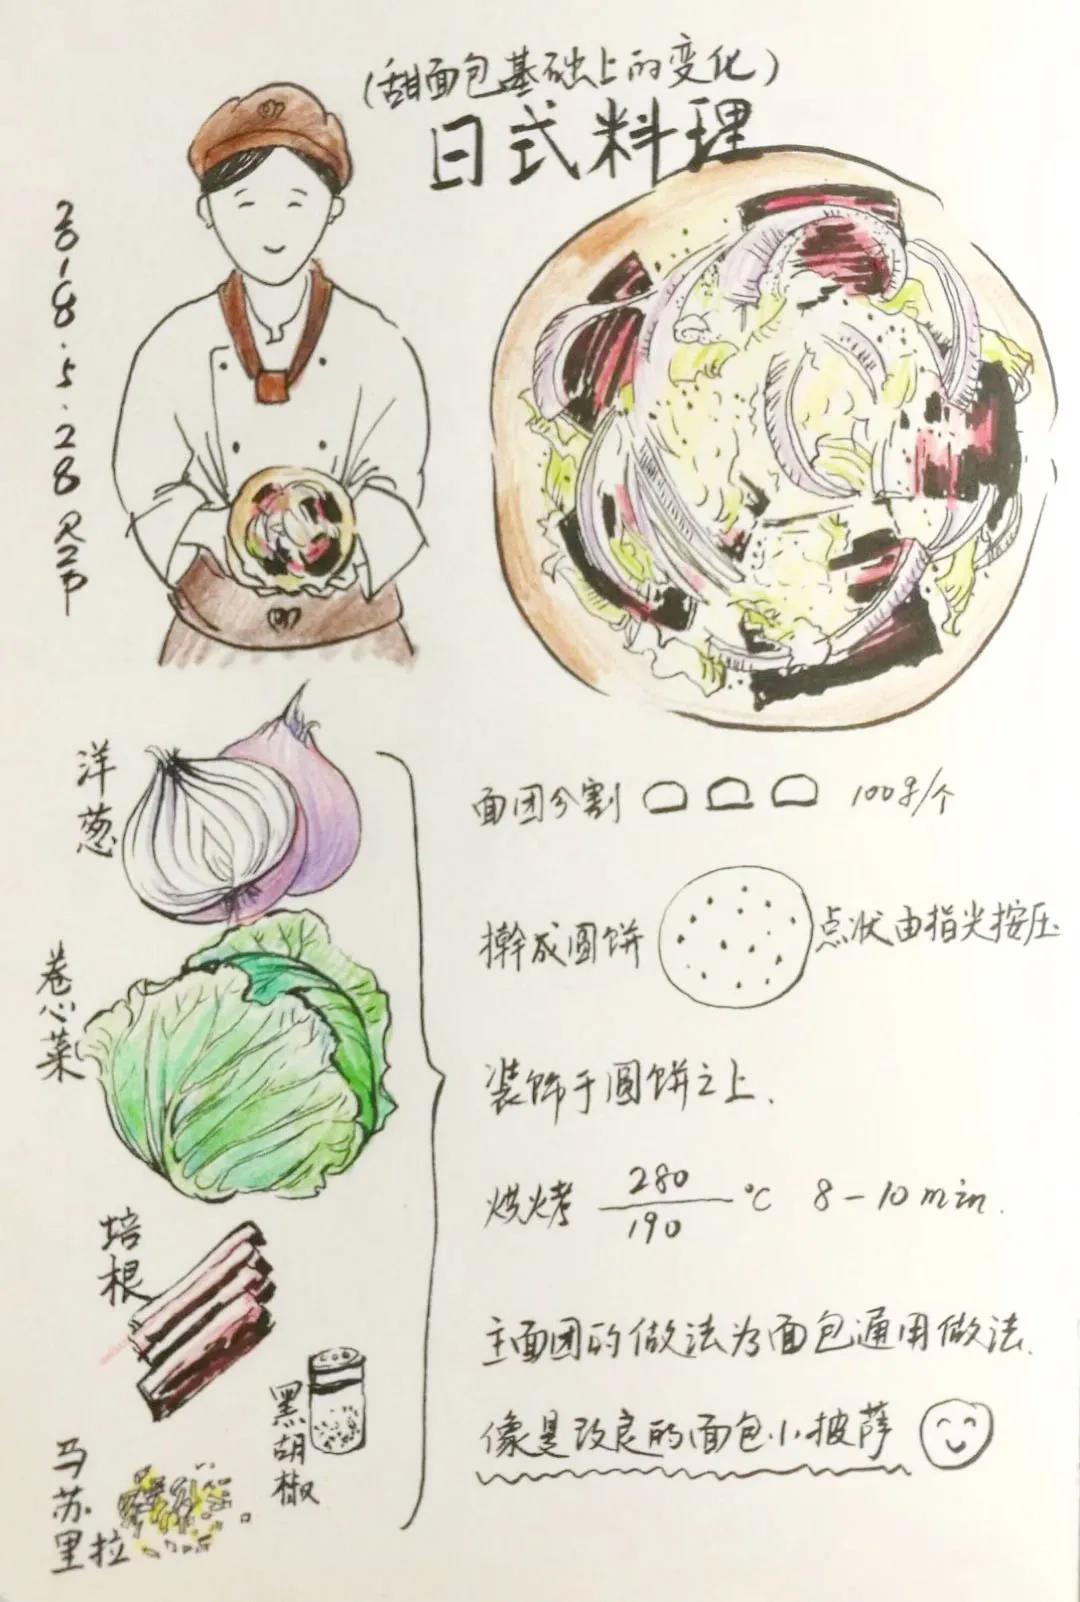 (甜面包基础上的变化)
日式料理
2018.5.28
洋葱
卷心菜
培根
黑胡椒
马苏里拉
面团分割 100g/个
擀成圆饼 点状由指尖按压
装饰于圆饼之上.
烘烤 280/190 ℃ 8-10min.
主面团的做法为面包通用做法.
像是改良的面包小披萨